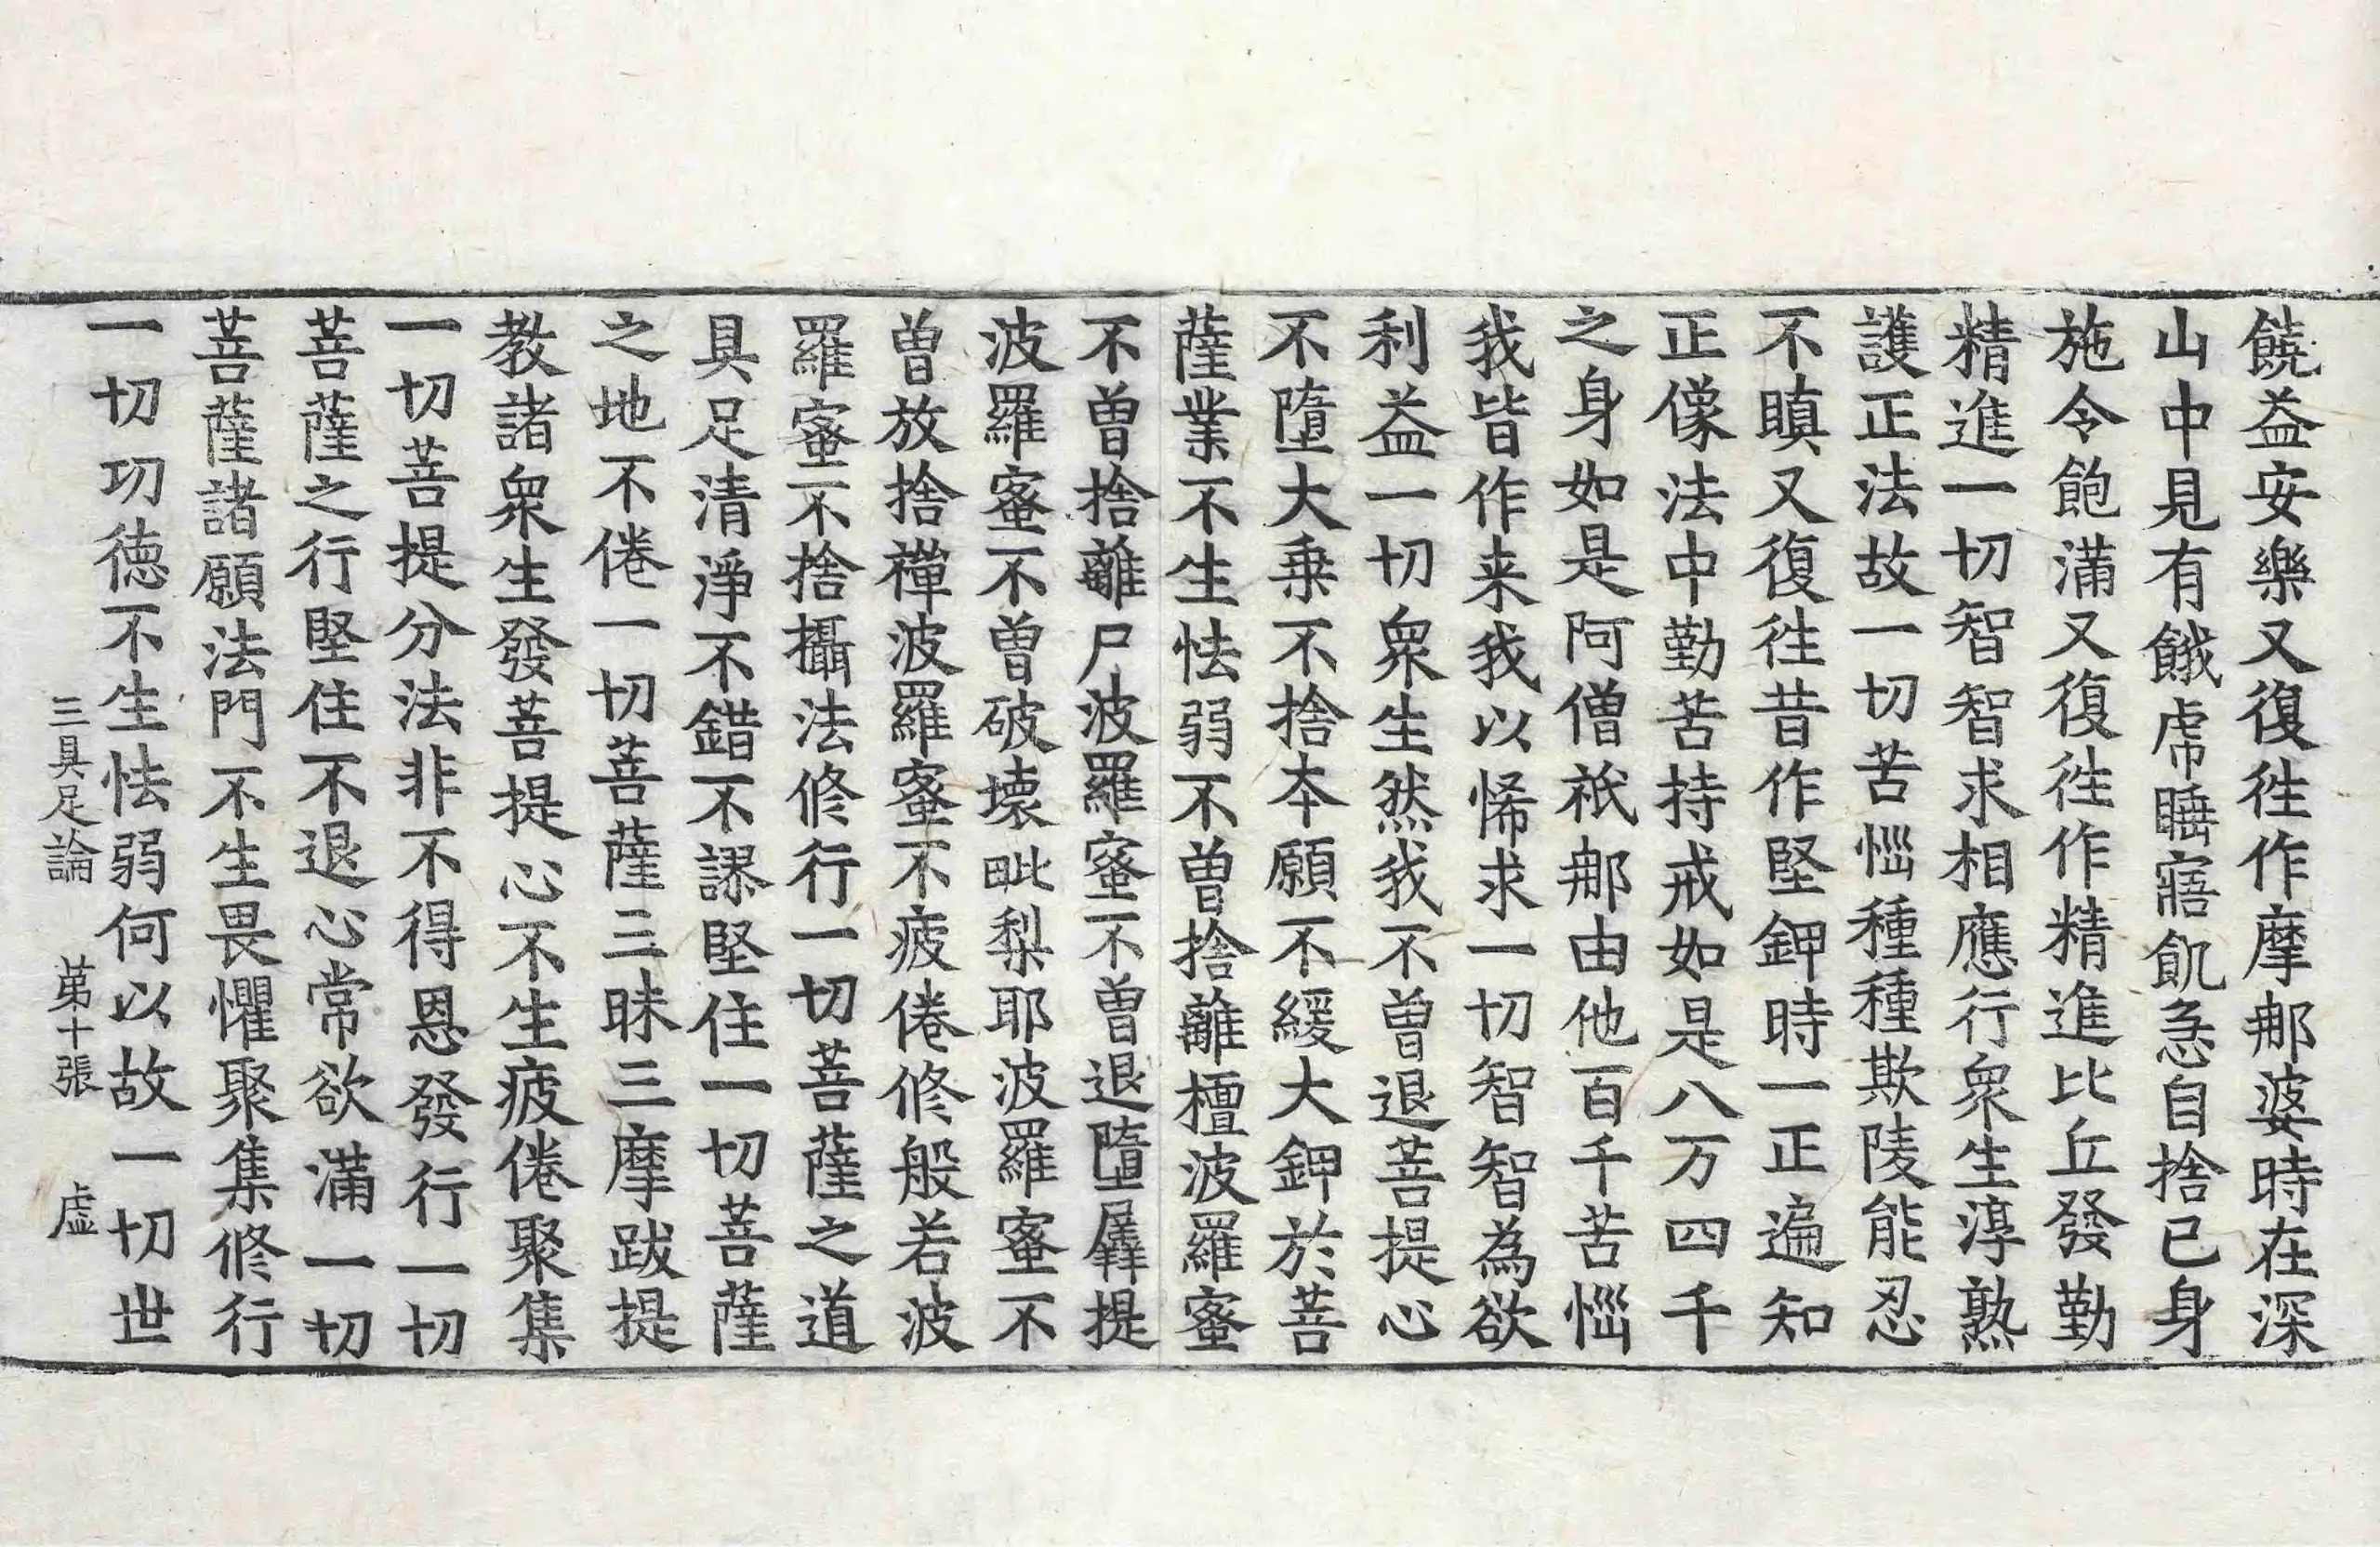 饒益安樂又復徃作摩那婆時在深
山中見有餓虎睡寤飢急自捨己身
施令飽滿又復徃作精進比丘發勤
精進一切智智求相應行衆生淳熟
護正法故一切苦惱種種欺陵能忍
不瞋又復徃昔作堅鉀時一正遍知
正像法中勤苦持戒如是八万四千
之身如是阿僧祇那由他百千苦惱
我皆作来我以悕求一切智智為欲
利益一切衆生然我不曽退菩提心
不墮大乗不捨本願不緩大鉀於菩
薩業不生怯弱不曽捨離檀波羅蜜
不曽捨離尸波羅蜜不曽退墮羼提
波羅蜜不曽破壊毗梨耶波羅蜜不
曽放捨禪波羅蜜不疲倦修般若波
羅蜜不捨攝法修行一切菩薩之道
具足清淨不錯不謬堅住一切菩薩
之地不倦一切菩薩三昧三摩跋提
教諸衆生發菩提心不生疲倦聚集
一切菩提分法非不得恩發行一切
菩薩之行堅住不退心常欲滿一切
菩薩諸願法門不生畏懼聚集修行
一切功徳不生怯弱何以故一切世
三具足論　第十張　虛